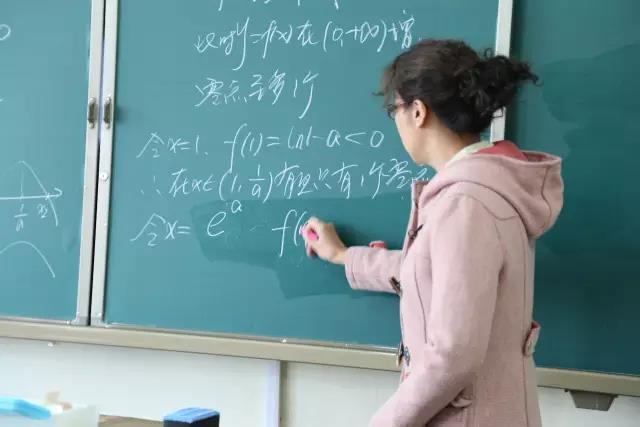 此时y=f(x)在(0,+∞)增.
零点至多1个
令x=1. f(1)=ln1-a<0
∴在x∈(1,1/a)有且只有1个零点
令x= e^a f(
1/a